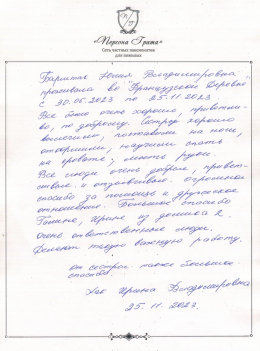 «Персона Грата»
Сеть частных пансионатов
для пожилых
Юлия Владимировна
проживала во "Французской Деревне"
с 30.06.2023 по 25.11.2023
Все было очень хорошо, приветли-
во, по доброму. Сестру хорошо
вылечили, поставили на ноги,
откормили, научили спать
на кровате, мыть руки.
Все люди очень добрые, привет-
ливые и отзывчивые. Огромное
спасибо за помощь и дружеское
отношение. Большое спасибо
Галине, Ирине из домика 2.
очень ответственные люди.
Делают такую важную работу.
от сестры также большое
спасибо.
Ирина Владимировна
25.11.2023.